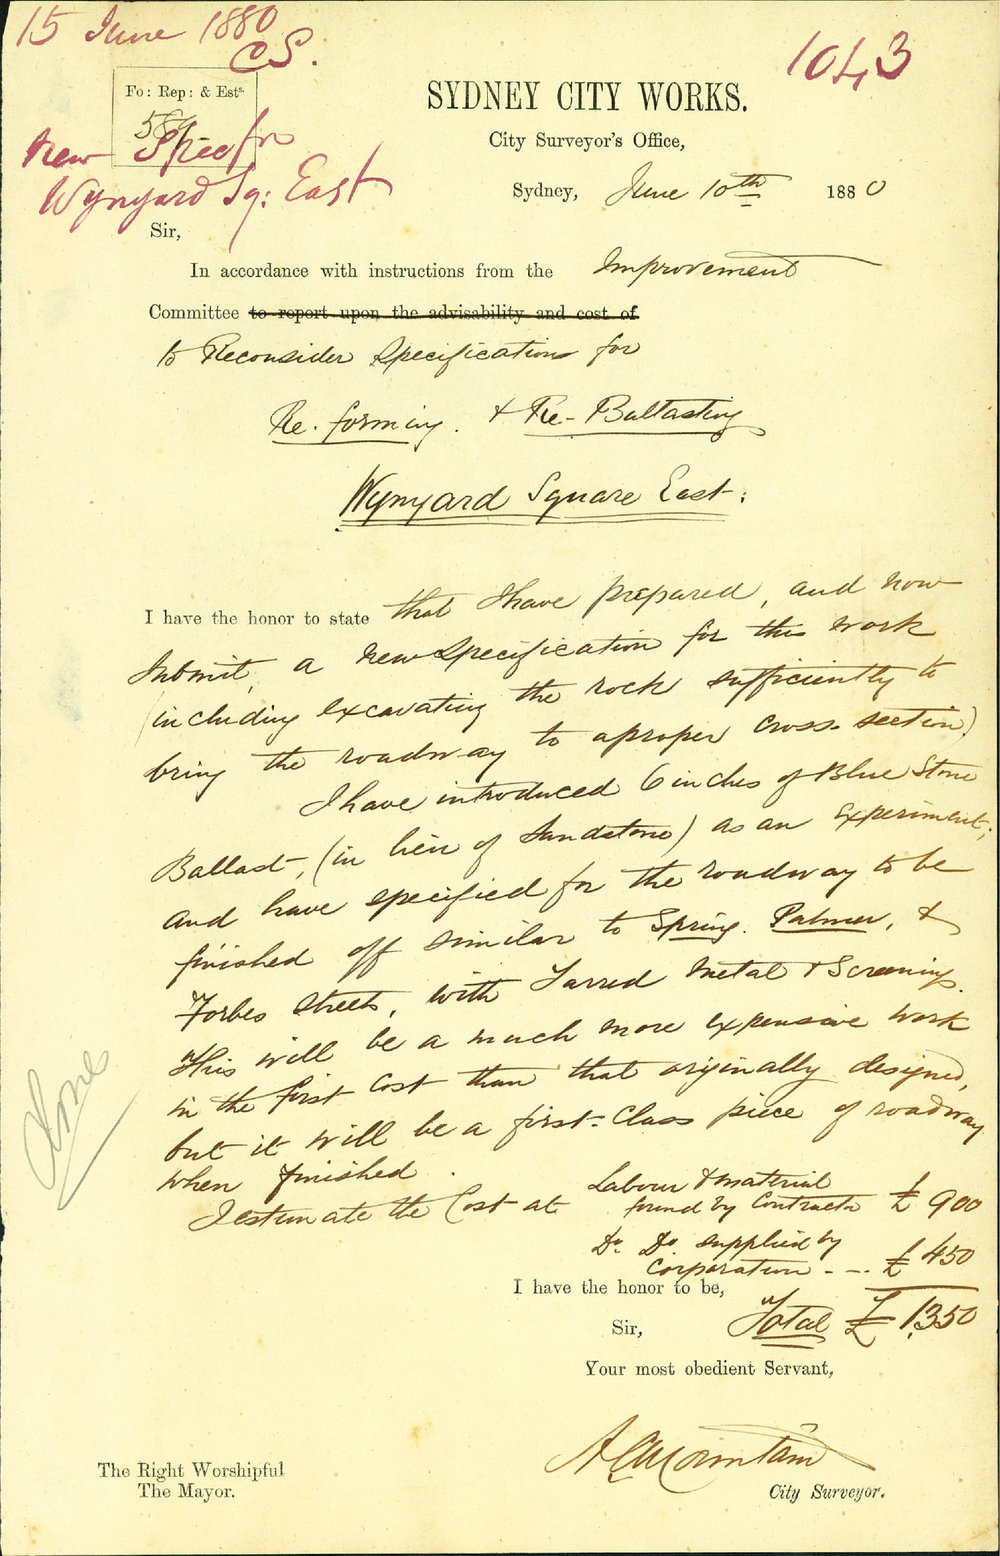 15 June 1880
CS.
1043
Fo: Rep: & Ests.
584
New Spec for
Wynyard Sq: East
SYDNEY CITY WORKS.
City Surveyor's Office,
Sydney, June 10th 1880
Sir,
In accordance with instructions from the Improvement
Committee to report upon the advisability and cost of
to Reconsider Specifications for
Re-forming & Re-Ballasting
Wynyard Square East.
I have the honor to state that I have prepared, and now
Submit, a new Specification for this work
(including excavating the rock sufficiently to
bring the roadway to a proper cross-section)
I have introduced 6 inches of Blue Stone
Ballast, (in lieu of Sandstone) as an experiment;
and have specified for the roadway to be
finished off similar to Spring. Palmer, &
Forbes Streets, with Tarred Metal & Screenings.
This will be a much more expensive work
in the first cost than that originally designed,
but it will be a first-class piece of roadway
when finished.
I estimate the Cost at Labour & material
found by Contractor £900
Do. Do. supplied by
Corporation - - . £450
I have the honor to be,
Total £1350
Sir,
Your most obedient Servant,
A C Mountain
City Surveyor.
The Right Worshipful
The Mayor.